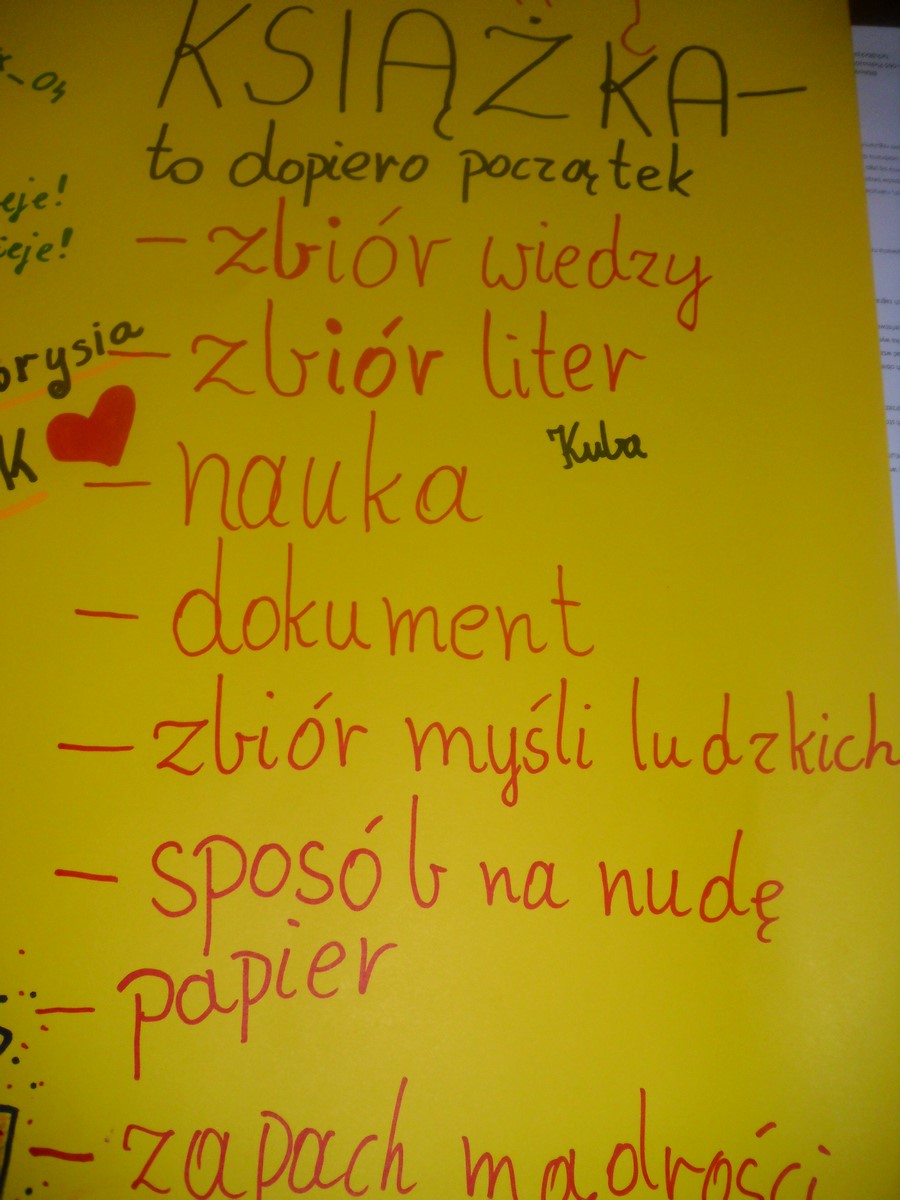 KSIĄŻKA-
to dopiero początek
- zbiór wiedzy
- zbiór liter
- nauka
Kuba
- dokument
- zbiór myśli ludzkich
- sposób na nudę
- papier
- zapach mądrości
eje!
ieje!
orysia
K